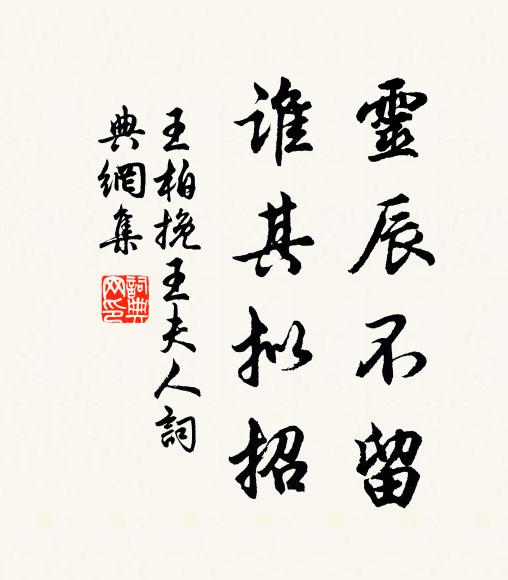 靈辰不留
谁其拟招
王柏挽王夫人詞
典網集
詞典網印